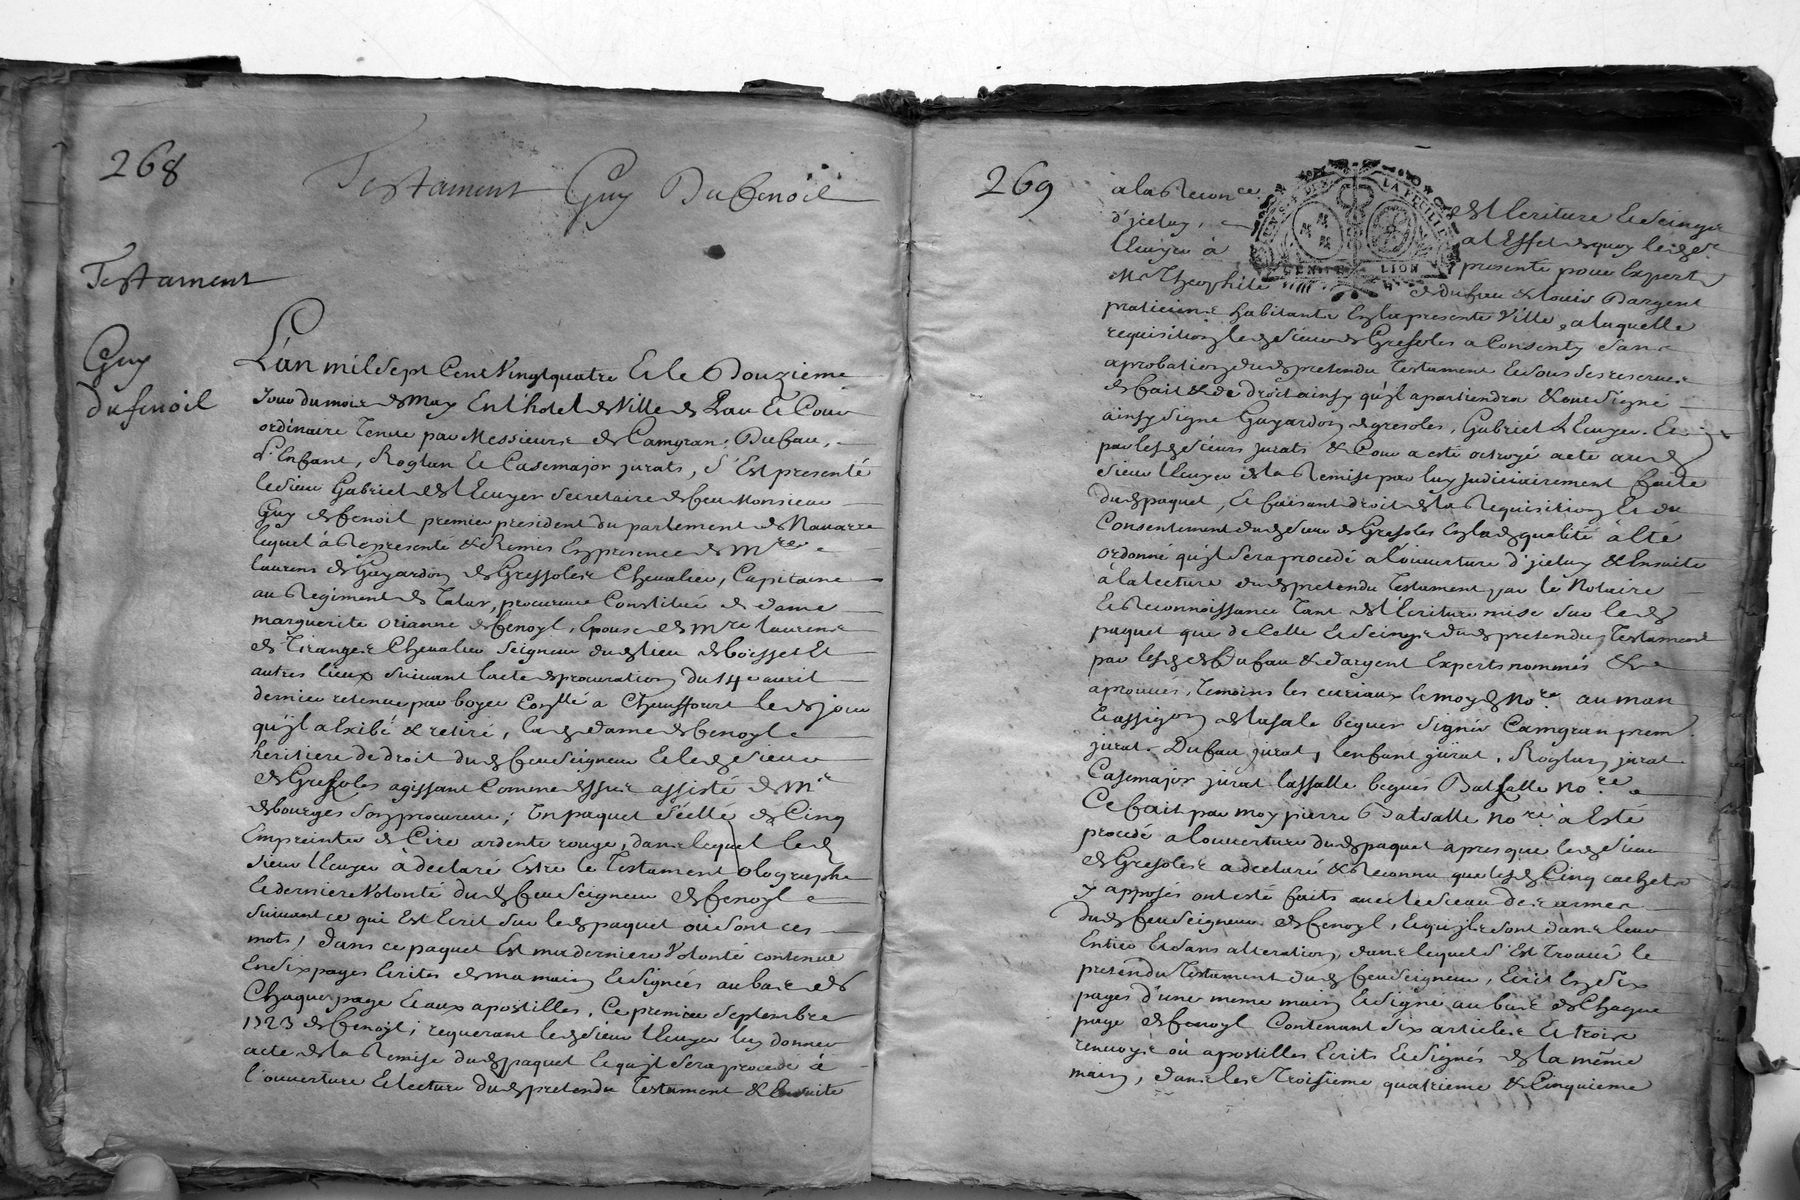 268
Testament Guy Dufenoil
Testament
Guy
dufenoil
L'an mil sept Cent Vingt quatre Et le Douzieme
Jour du mois de May En l'hotel de Ville de Pau Et Cour
ordinaire Tenue par Messieurs de Camgran, Dufau,
L'Enfant, Roglan Et Casemajor jurats, S'Est presenté
le sieur Gabriel de l'Ecuyer secretaire de feu Monsieur
Guy de fenoil premier president du parlement de Navarre
lequel à Representé & Remis En presence de Mre
laurens de Guyardon de Gressoles Chevalier, Capitaine
au Regiment de Talar, procureur Constitué de dame
marguerite orianne de fenoyl, Epouse de Mre laurens
de Tiranges Chevalier Seigneur du lieu de boësset Et
autres lieux suivant l'acte de procuration du 14e avril
dernier retenue par boyer Conlle a Chauffourt led jour
qu'jl a Exibé & retiré, lad dame de fenoyl
heritiere de droit dud feu seigneur Et led sieur
de Gresoles agissant Comme dessus assisté de Mr
de bourges son procureur; Un paquet scéllé de Cinq
Empreintes de Cire ardente rouge, dans lequel led
sieur lEcuyer à declaré Estre le Testament olographe
Et derniere Volonté dud feu seigneur de fenoyl
suivant ce qui Est Ecrit sur led paquet où sont ces
mots, dans ce paquet Est ma derniere Volonté contenue
En six pages Ecrites de ma main Et signées au bas de
Chaque page Et aux apostilles, Ce premier septembre
1723 de fenoyl; requerant led sieur lEcuyer luy donner
acte de la Remise dud paquet Et qu'jl sera procedé à
l'ouverture Et lecture dud pretendu Testament & Ensuite
269
a la Reconce de l'Ecriture Et Seings
d'jceluy, a l'Effet de quoy led sr
lEcuyer à presenté pour Experts
Mr Theophile de dufau & louis Dargent
praticiens habitants En la presente Ville, a laquelle
requisition led sieur de Gresoles a Consenty sans
aprobation dud pretendu Testament Et sous ses reserves
de fait & de droit ainsy qu'jl apartiendra & ont signé
ainsy signé Guyardon de gresoles, Gabriel lEcuyer. Et
par lesd sieurs jurats & Cour a esté octroyé acte aud
sieur lEcuyer de la Remise par luy judiciairement faite
dud paquet, Et faisant droit de la Requisition Et du
Consentement dud sieur de Gresoles En lad qualité à Eté
ordonné qu'jl sera procedé a l'ouverture d'jceluy & Ensuite
à la lecture dud pretendu Testament par le Notaire
Et Reconnoissance Tant de l'Ecriture mise sur led
paquet que de Celle Et seings dud pretendu Testament
par lesd de Dufau & dargent Experts nommés &
aprouvés, Temoins les curiaux le moy d nore au man
Et assign de lasale beguer signés Camgran prem
jurat. Dufau jurat, lenfant jurat, Roglan jurat
Casemajor jurat lassalle begués Batsalle nore
Ce fait par moy pierre Batsalle nore à Esté
procedé a l'ouverture dud paquet apres que led sieur
de Gresoles a declaré & Reconnu que lesd Cinq cachets
y apposés ont esté faits avec le sceau des armes
dud feu seigneur de fenoyl, Et qu'jls sont dans leur
Entier Et sans alteration, dans lequel s'Est Trouvé le
pretendu Testament dud feu seigneur, Ecrit En six
pages d'une meme main Et signé au bas de Chaque
page de fenoyl Contenant six articles Et trois
renvoys où apostilles Ecrits Et signés de la même
main, dans les Troisieme quatrieme & Cinquieme